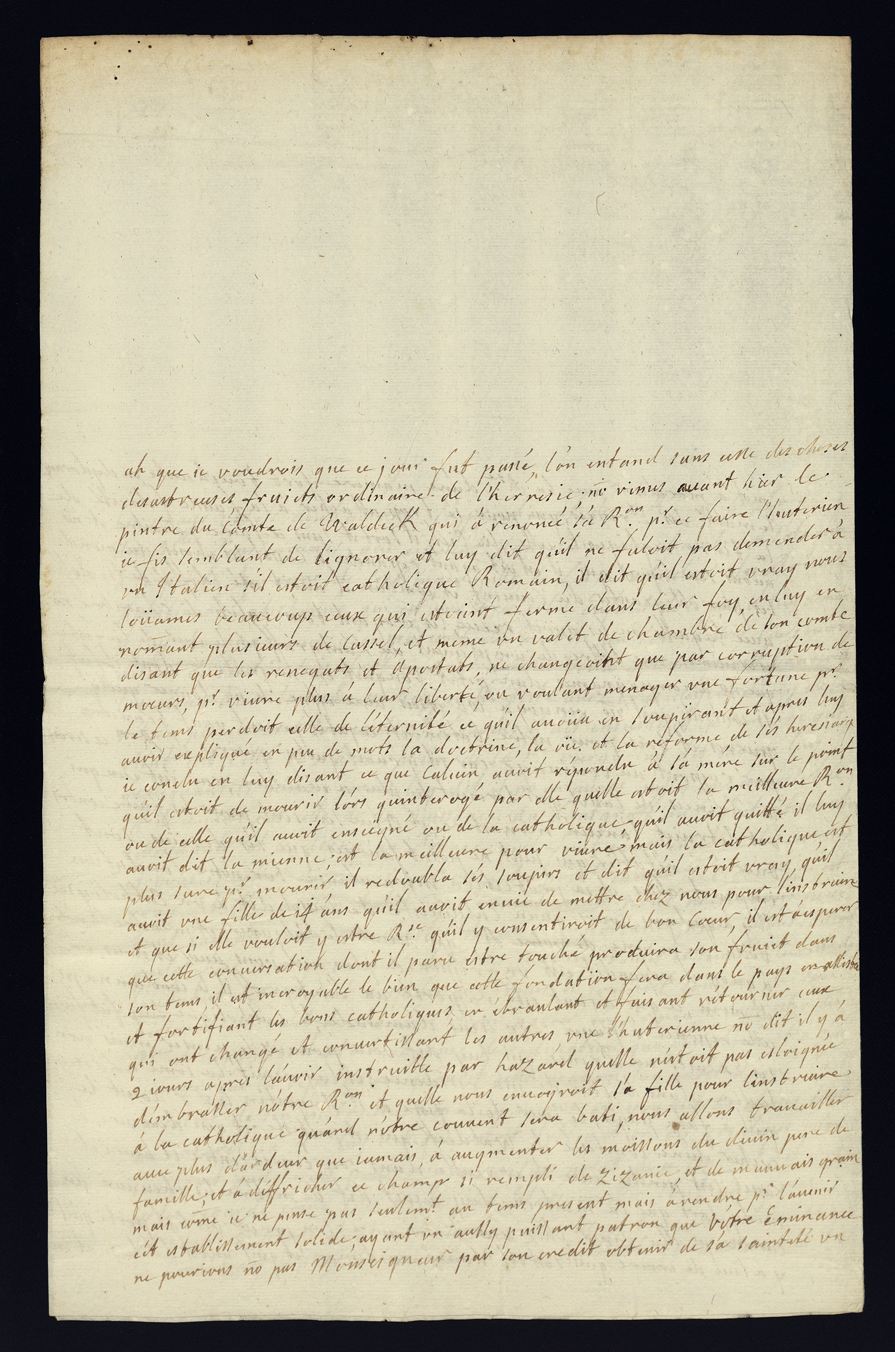 ah que ie voudrois que ce jour fut passé, l'on entand sans cesse des choses
desastreuses fruicts ordinaire de l'herresie; no vimes auant hier le
pintre du Comte de Waldeck qui à renoncé sa R.on pr. ce faire Lhuterien
ie fis semblant de lignorer et luy dit qu'il ne faloit pas demender à
vn Italien s'il estoit catholique Romain, il dit qu'il estoit vray nous
loüames beaucoup ceux qui estoint ferme dans leur foy, en luy en
nomant plusieurs de Cassel, et meme vn valet de chambre de son comte
disant que les renegats et Apostats, ne changeoint que par corruption de
mœurs, pr. viure plus à leur liberté, ou voulant menager vne fortune pr.
le tems perdoit celle de léternité ce qu'il avoüa en soupirant et apres luy
auoir expliqué en peu de mots la doctrine, la vie. et la réforme de ses heresiarq
ie conclu en luy disant ce que Caluin auoit répondu à sa mére sur le point
qu'il estoit de mourir lórs quinterogé par elle quelle estoit la meilleure R.on
ou de celle qu'il auoit enseigné ou de la catholique qu'il auoit quitté il luy
auoit dit la mienne est la meilleure pour viure, mais la catholique est
plus sure pr. mourir il redoubla sés soupirs et dit qu'il estoit vray qu'il
auoit vne fille de 14 ans qu'il auoit enuie de mettre chez nous pour l'instruire
et que si elle vouloit y estre R.se qu'il y consentiroit de bon Cœur, il est à esperer
que cette conuersation dont il paru estre touché produira son fruict dans
son tems, il est incroyable le bien que cette fondation fera dans le pays en
et fortifiant les bons catholiques, en ébranlant et faisant rétourner ceux
qui ont changé et conuertissant les autres vne Lhuterienne no dit il y à
2 iours apres l'auoir instruitte par hazard quelle n'estoit pas esloignée
démbrasser nótre R.on et quelle nous enuoyroit sa fille pour l'instruire
à la catholique quand nótre couuent sera bati, nous allons trauailler
auec plus d'ardeur que iamais, à augmenter les moissons du diuin pere de
famille, et à diffricher ce champ si rempli de zizanie, et de mauuais grain
mais come ie ne pense pas seulemt au tems present mais à rendre pr. l'auenir
cét establissement solide, ayant vn aussy puissant patron que Vótre Eminance
ne pourions no pas Monseigneur par son credit obtenir de sa sainteté vn